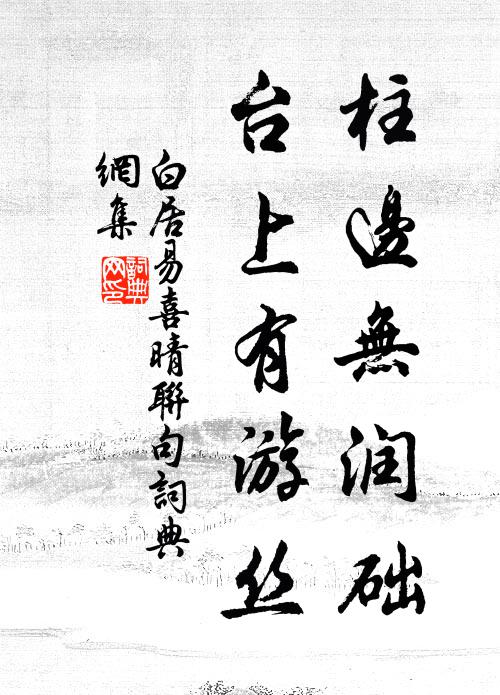 柱邊無润础
台上有游丝
白居易喜晴聯句詞典
網集
詞典网印